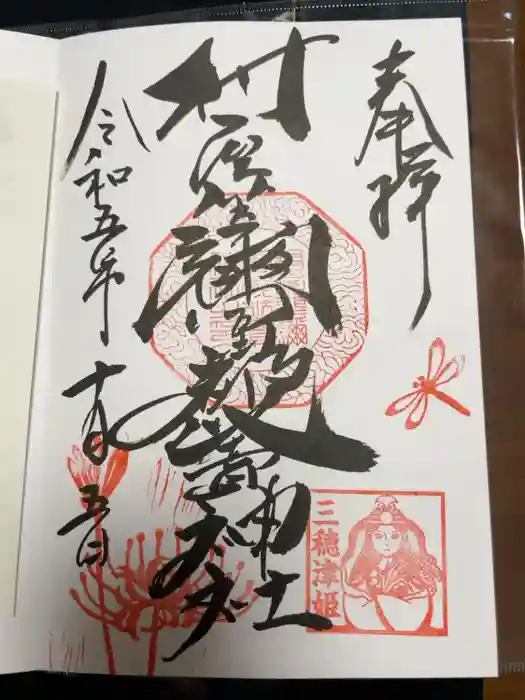 奉拝
村屋坐彌冨都比賣神社
令和五年十月五日
三穂津姫